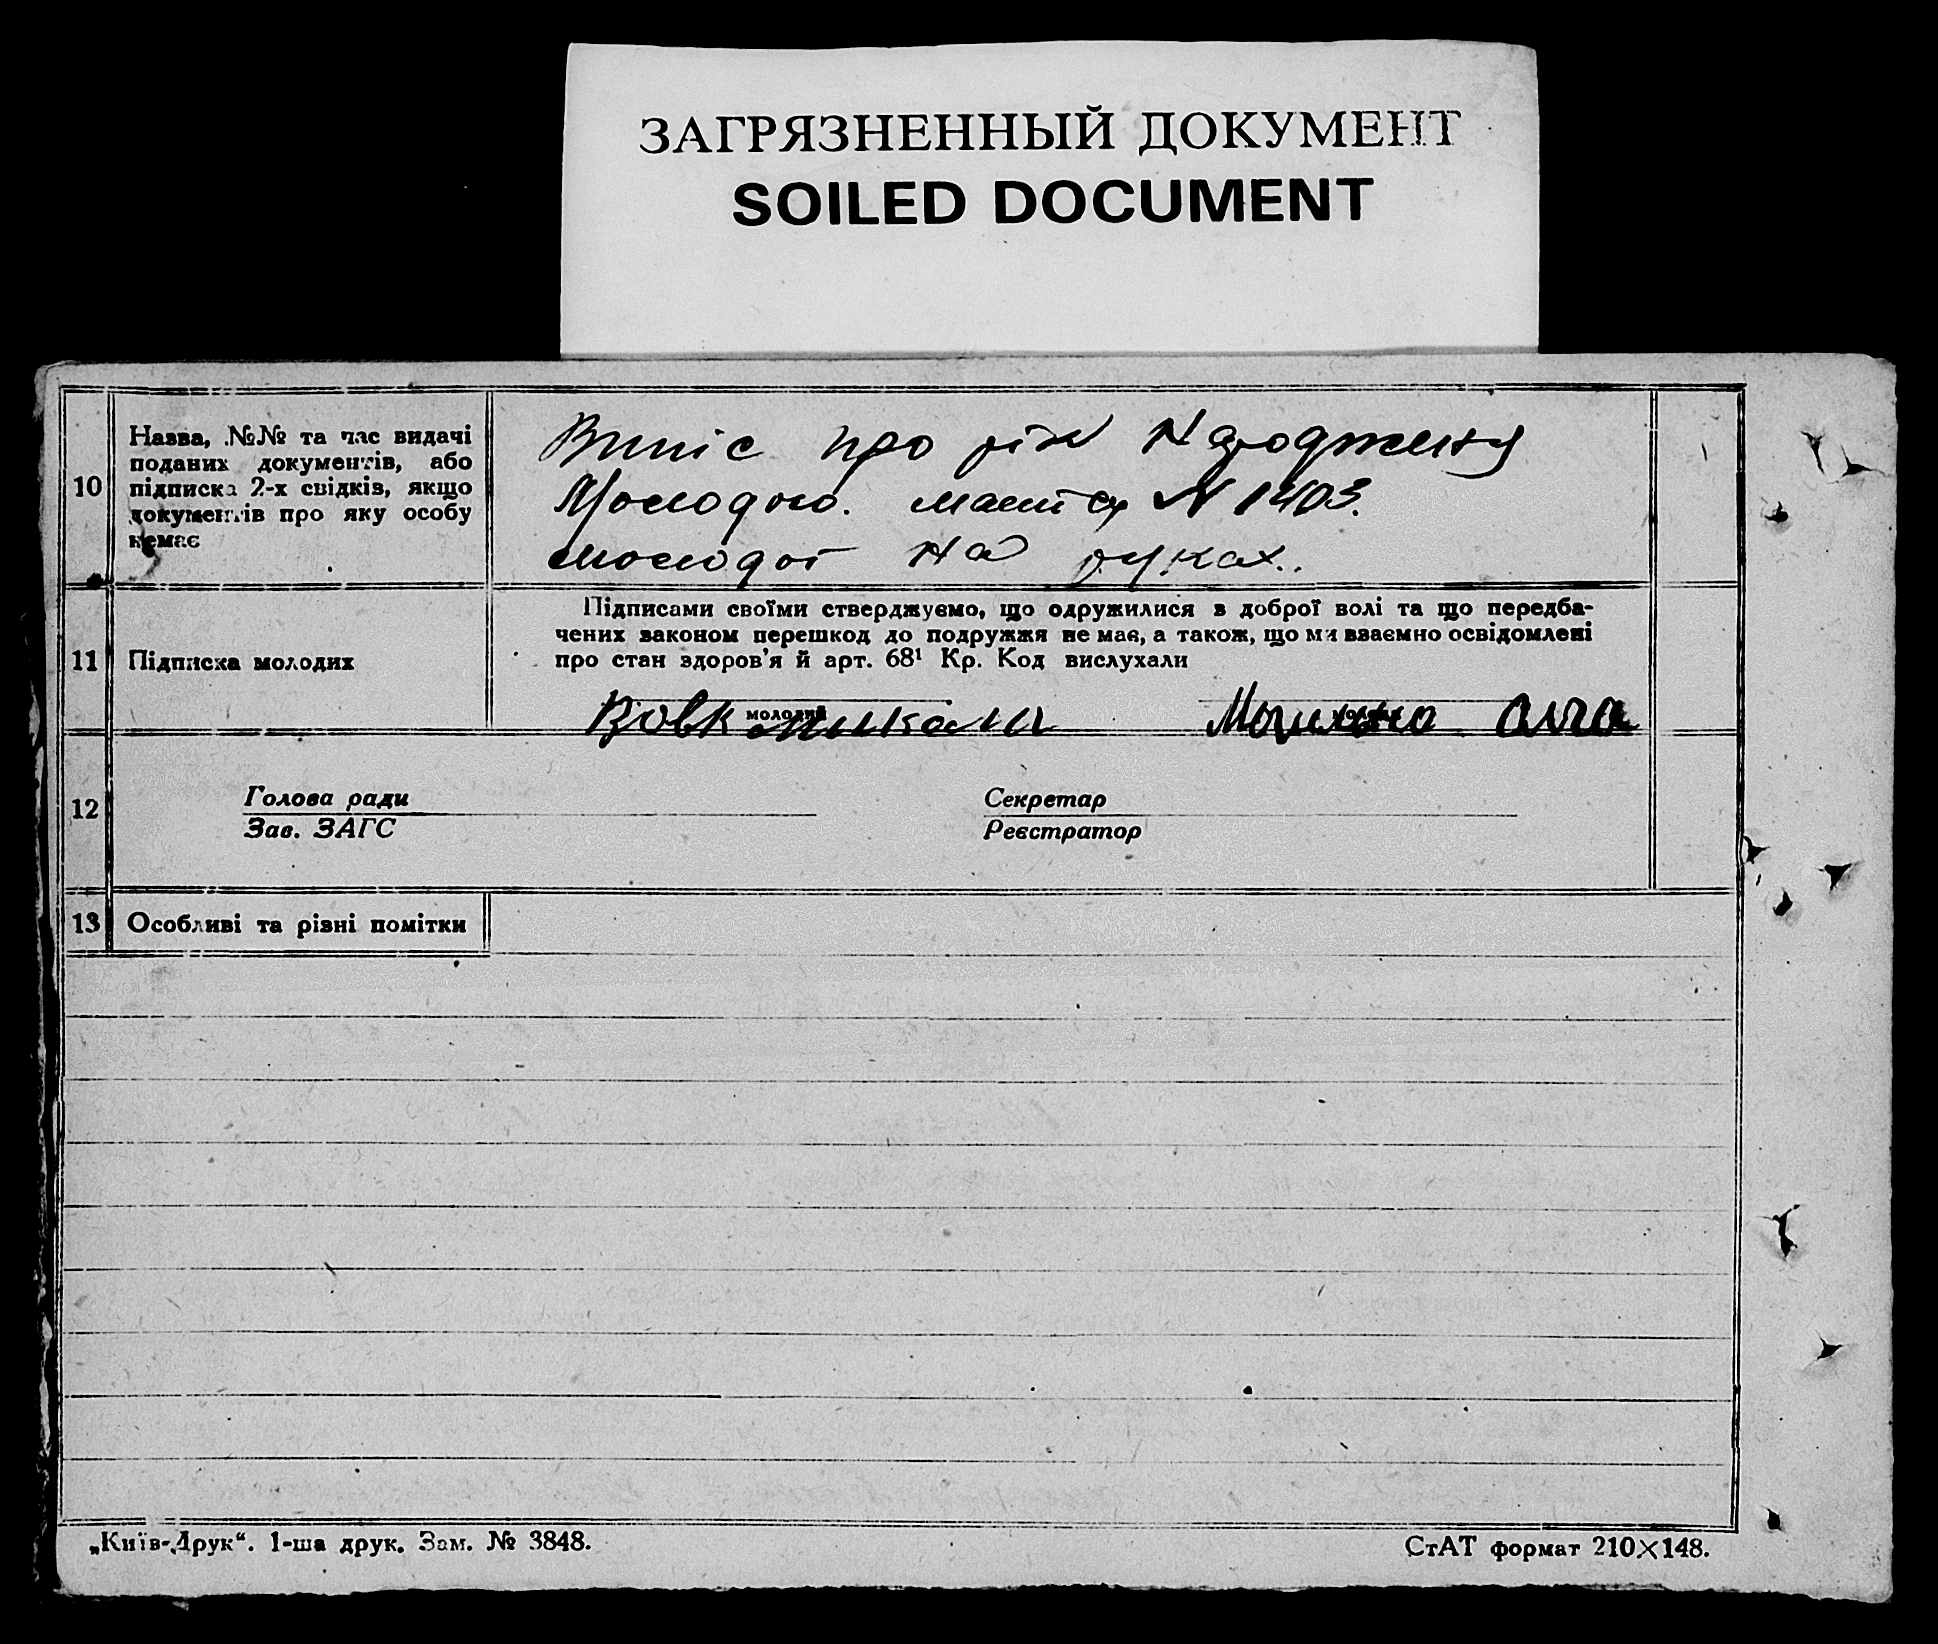 ЗАГРЯЗНЕННЫЙ ДОКУМЕНТ
SOILED DOCUMENT
10
Назва, №№ та час видачі
поданих документів, або
підписка 2-х свідків, якщо
документів про яку особу
немає
Випіс про рік Народження
Молодого. N 1403.
молодої на руках..
11
Підписка молодих
Підписами своїми стверджуємо, що одружилися з доброї волі та що передба-
чених законом перешкод до подружжя не має, а також, що ми взаємно освідомлені
про стан здоров'я й арт. 68¹ Кр. Код вислухали
Вовк
молодий
12
Голова ради
Зав. ЗАГС
Секретар
Реєстратор
13
Особливі та різні помітки
„Київ-Друк“. 1-ша друк. Зам. № 3848.
СтАТ формат 210×148.